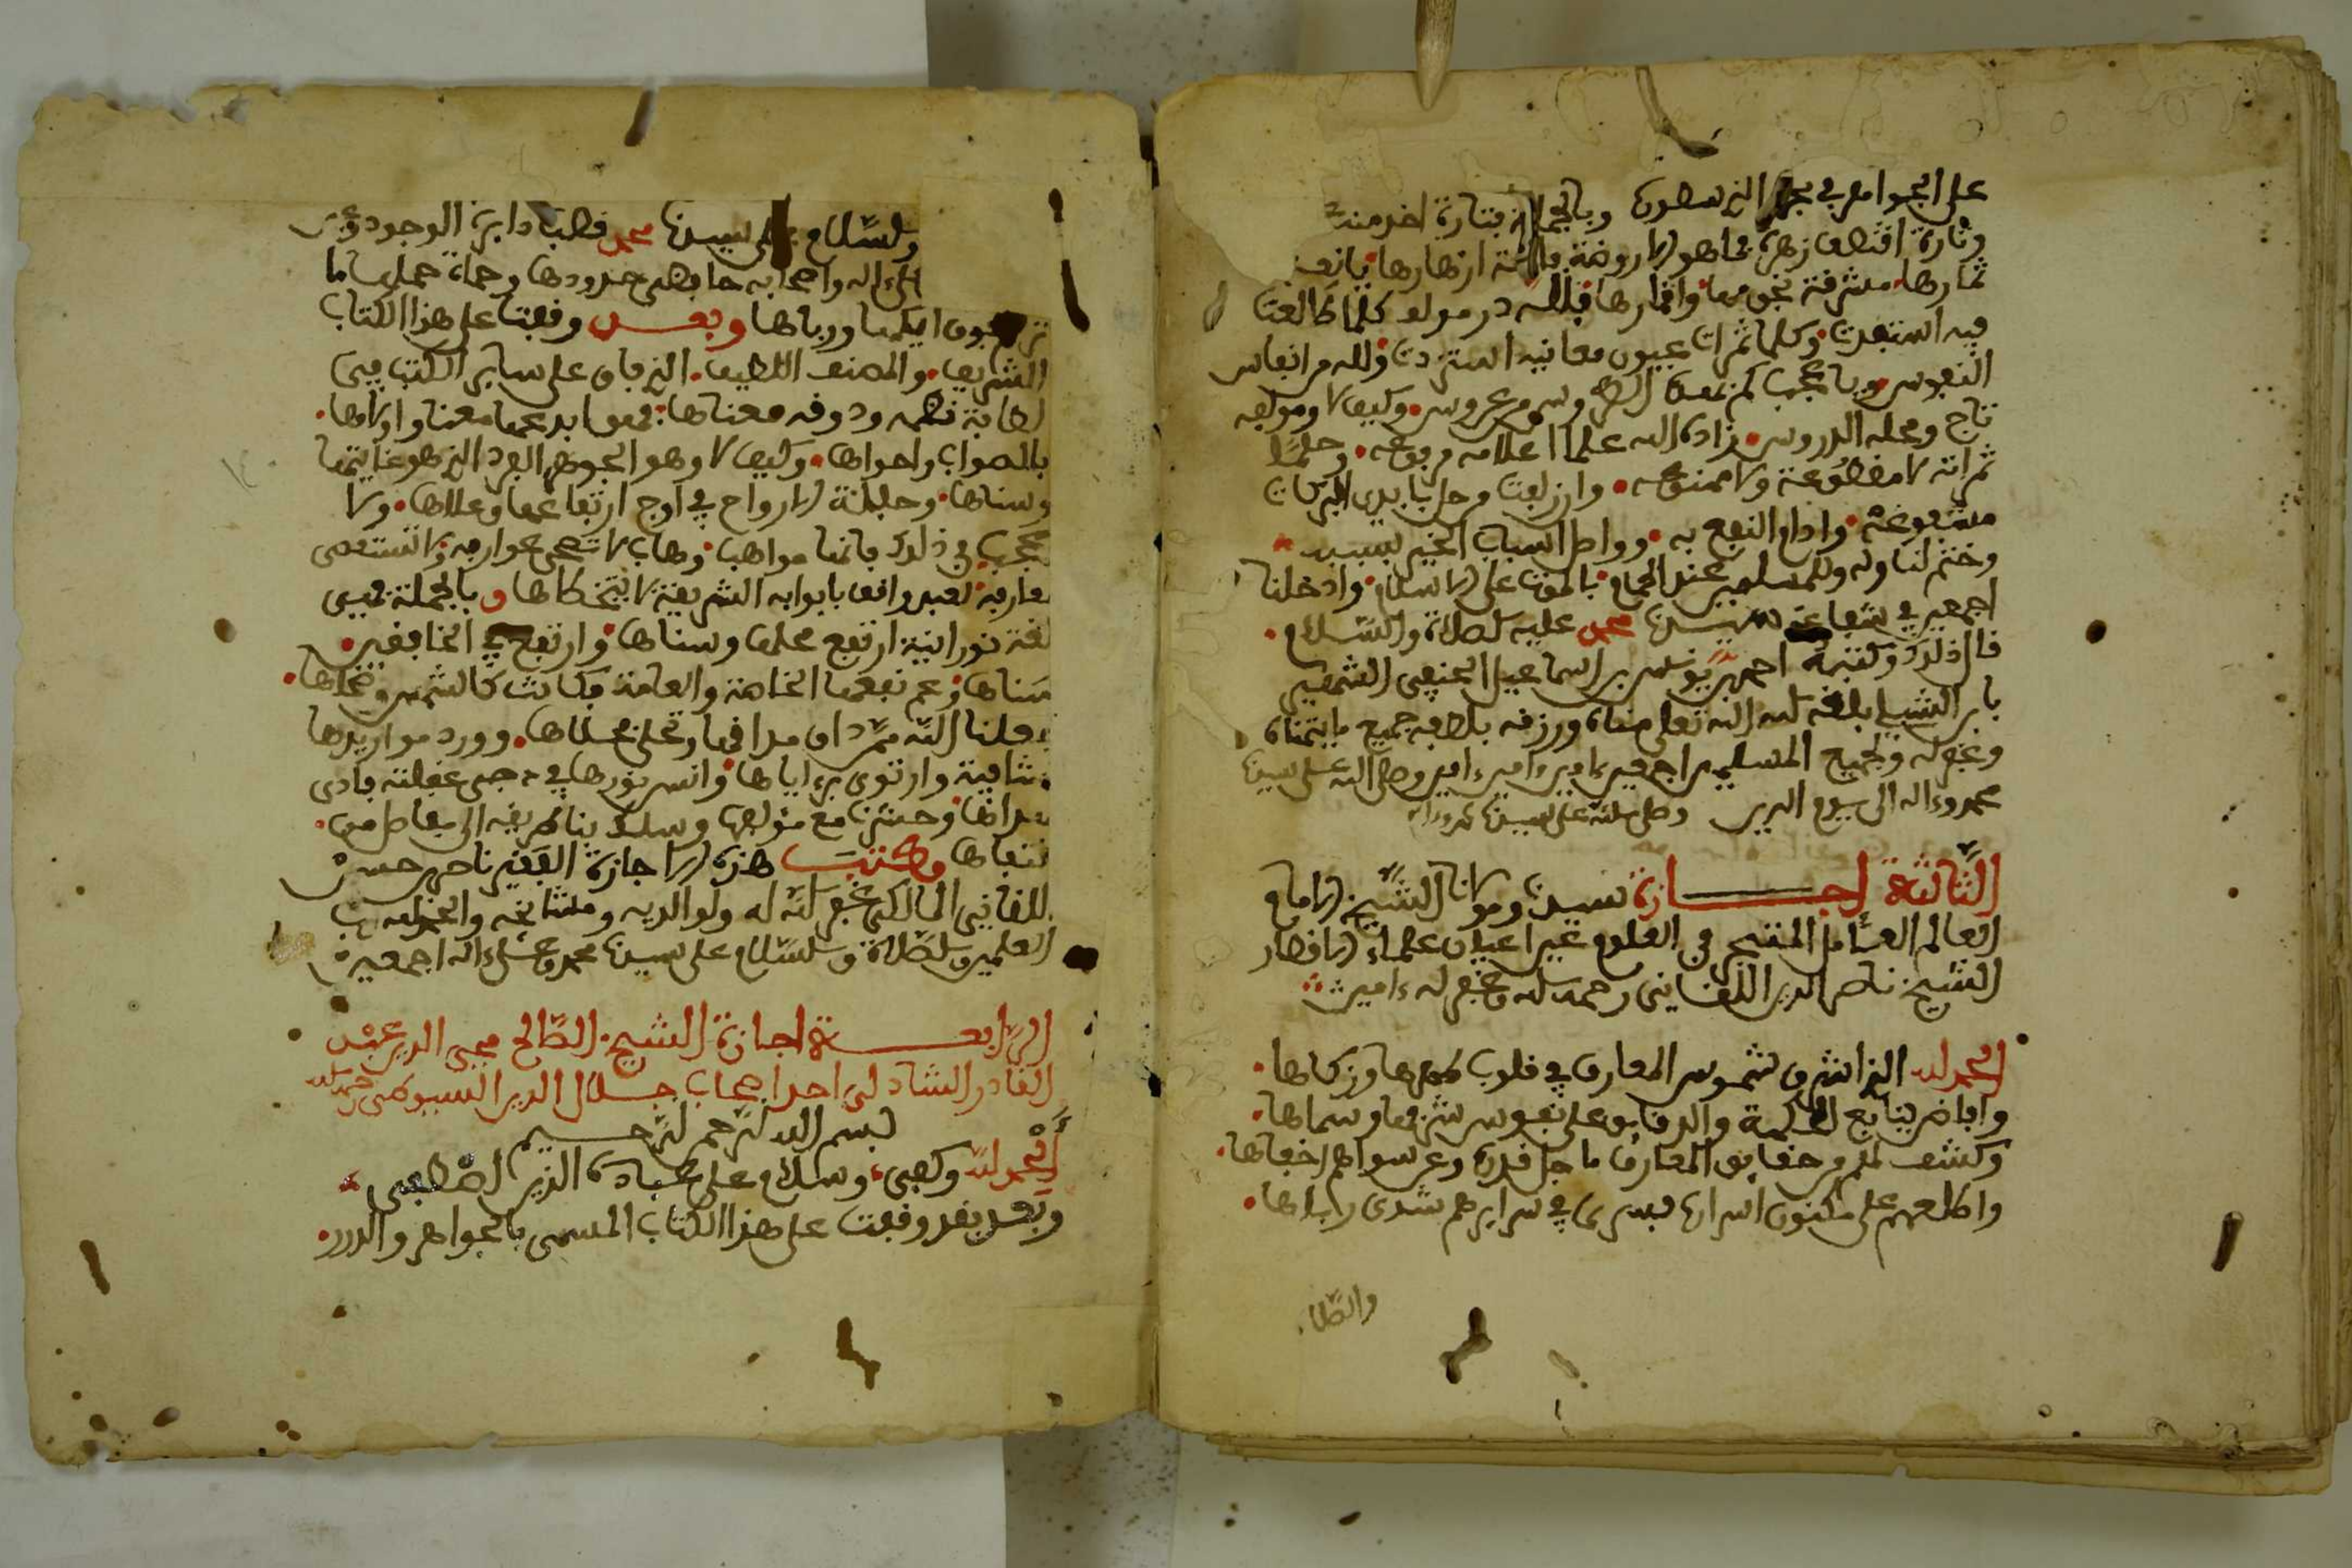 على الجواهر في بحر الذي سطرت وبالجملة فتارة اخذ منه
وتارة اقتطف زهرة فما هو الا روضة يانعة ازهارها يانعة
ثمارها مشرفة نجومها واقمارها فلله در مولف كلما طالعت
فيه استفدت وكلما ثمرات بعيون معانيه استزدت ولله من انفاس
النفوس ويا عجبا كم نفس وسم عروس وكيف لا ومولفه
تاج ومحله الدروس زاده الله علما اعلامه مرفوعه وحلما
ثمراته لا مقطوعة ولا ممنوعه وان زلفت وحل بايدي البركات
مشفوعة وادام النفع به وواصل اسباب الخير بسببه
وختم لنا وله وللمسلمين عند الحمام بالموت على الاسلام وادخلنا
اجمعين في شفاعة سيدنا محمد عليه الصلاة والسلام
قال ذلك وكتبه احمد بن يونس بن اسماعيل الحنفي الشهير
بابن الشلبي بلغه الله تعلى مناه ورزقه بلطفه جميع ما يتمناه
وغفر له ولجميع المسلمين اجمعين ءامين ءامين ءامين وصلى الله على سيدنا
محمد وءاله الى يوم الدين وصلى الله على سيدنا محمد وءاله
الثالثة اجازة سيدنا ومولانا الشيخ الامام
العالم العامل المتبحر في العلوم عين اعيان علماء الاقطار
الشيخ ناصر الدين اللقاني رحمه الله وغفر له ءامين
الحمد لله الذي اشرق شموس المعارف في قلوب طهرها وزكاها
وافاض ينابيع الحكمة والدقايق على نفوس شرفها وسماها
وكشف لهم من حقايق المعارف ما جل قدره وعن سواهم اخفاها
واطلعهم على مكنون اسرار فسرى في سرايرهم شذى رياها
والصلا
والسلام على سيدنا محمد قطب دايرة الوجود وعلى
ءاله واصحابه حافظي حدودها وحماة حماها ما
وبعد وقفت على هذا الكتاب
الشريف والمصنف اللطيف الذي فاق على سائر الكتب فيى
لطافة نظمه ودوقه معناها فهو ابدعها معنا واولاها
بالصواب واحراها وكيف لا وهو الجوهر الفرد الذي هو غايتها
وسناها وحليلة الارواح في اوج ارتفاعها وعلاها ولا
عجب في ذلك فانها مواهب وهاب لا تحصى عوارفه ولا تستقصى
معارفه لعبد واقف بابوابه الشريفة لا يتخطاها وبالجملة فهي
لغة نورانية ارتفع محلها وسناها وارتفع في الخافقين
سناها وعم نفعها الخاصة والعامة فكانت كالشمس وضحاها
جعلنا الله ممن دان مذاقها وتحلى بحلاها وورد مواردها
الشافية وارتوى برءاياها وانس نورها في دجى غفلته فادى
هداها وحشرنا مع مؤلفها وسلك بنا طريقه الى مقاصد من
وكتب هذه الاجازة الفقير ناصر حسن
اللقاني المالكي غفر الله له ولوالديه ومشايخه والحمد لله رب
العلمين والصلاة والسلام على سيدنا محمد وعلى ءاله اجمعين
الرابعة اجازة الشيخ الصالح محيي الدين عبد
القادر الشاذلي احد اصحاب جلال الدين السيوطي رحمه الله
بسم الله الرحمن الرحيم
الحمد لله وكفى وسلام على عباده الذين اصطفى
وبعد فقد وقفت على هذا الكتاب المسمى بالجواهر والدرر